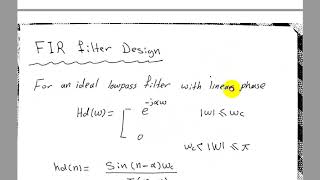 FIR filter Design
For an ideal lowpass filter with linear phase
Hd(ω) = [ e^{-jαω} |ω| ≤ ωc
0 ωc < |ω| ≤ π
hd(n) = Sin(n-α)ωc